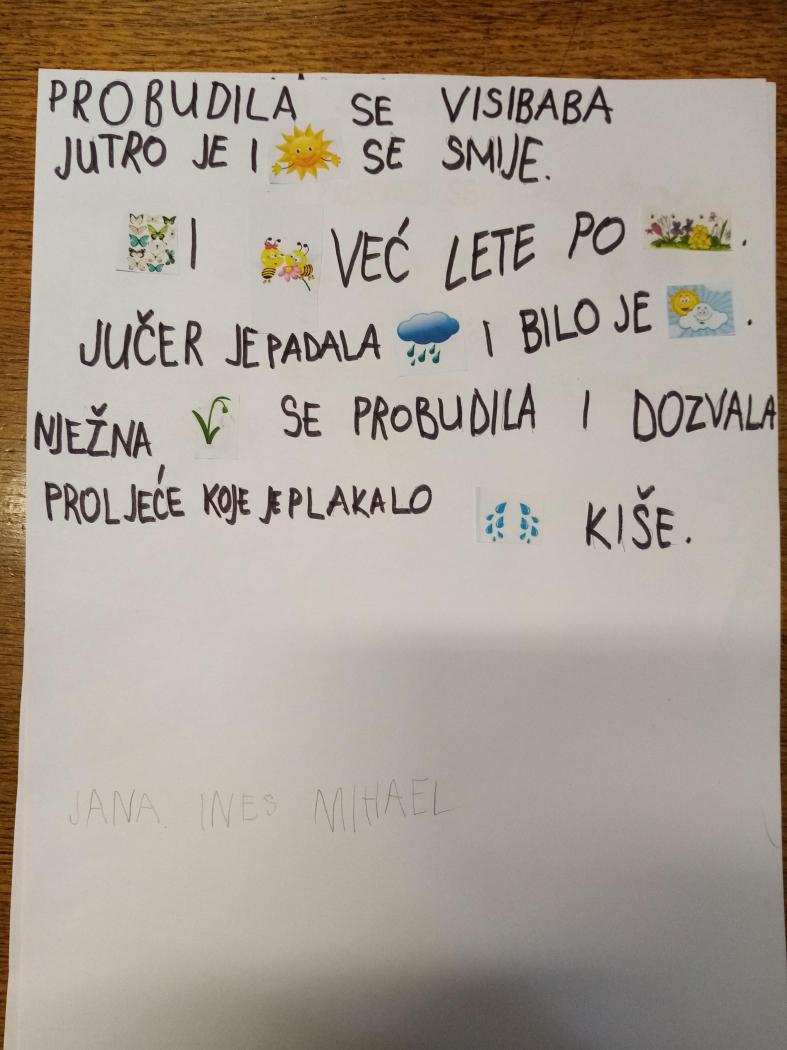 PROBUDILA SE VISIBABA
JUTRO JE I SE SMIJE.
I VEĆ LETE PO .
JUČER JE PADALA I BILO JE .
NJEŽNA SE PROBUDILA I DOZVALA
PROLJEĆE KOJE JE PLAKALO KIŠE.
JANA INES MIHAEL